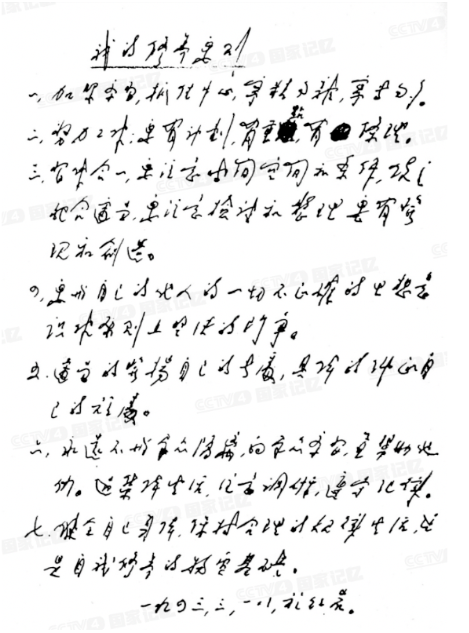 我的修养要则
一、加紧学习,抓住中心,宁精勿杂,宁专勿多。
二、努力工作,要有计划,有重点,有条理。
三、习作合一,要注意时间空间和条件,使之
配合适当,要注意检讨和整理,要有发
现和创造。
四、要与自己的他人的一切不正确的思想意
识作原则上坚决的斗争。
五、适当的发扬自己的长处,具体的纠正自
己的短处。
六、永远不与群众隔离,向群众学习,并帮助他
们。过集体生活,注意调研,遵守纪律。
七、健全自己身体,保持合理的规律生活,这
是自我修养的物质基础。
一九四三,三,一八,于红岩。
CCTV4 国家记忆